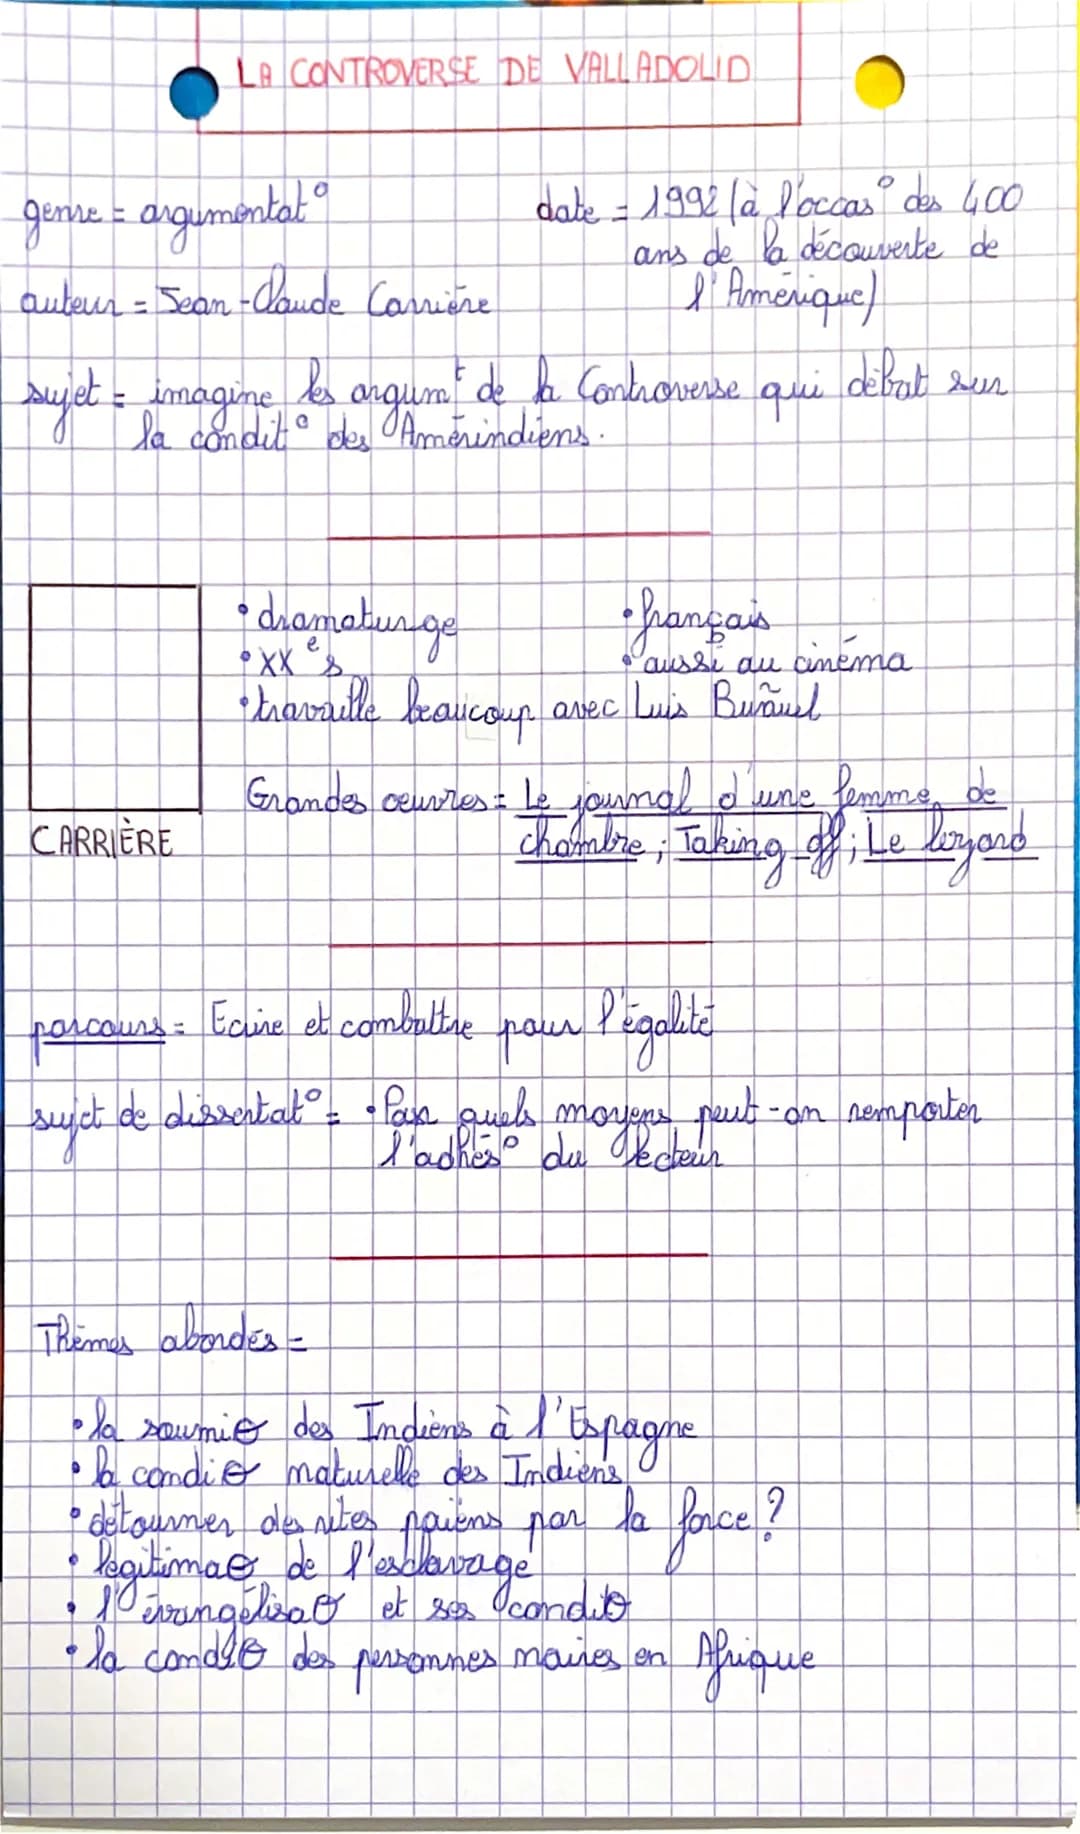 LA CONTROVERSE DE VALLADOLID
genre = argumentat°
date = 1992 (à l'occas° des 400
ans de la découverte de
l'Amérique)
auteur = Jean-Claude Carrière
sujet = imagine les argumt de la Controverse qui débat sur
la condit° des Amérindiens.
• dramaturge
• français
• XXe s
• aussi au cinéma
• travaille beaucoup avec Luis Buñuel
Grandes œuvres = Le journal d'une femme de
chambre ; Taking off ; Le lézard
CARRIÈRE
parcours = Ecrire et combattre pour l'égalité
sujet de dissertat° = • Par quels moyens peut-on remporter
l'adhés° du lecteur
Thèmes abordés =
• la soumiɵ des Indiens à l'Espagne
• la condiɵ naturelle des Indiens
• détourner des rites païens par la force ?
• légitimaɵ de l'esclavage
• l'évangélisaɵ et ses conditɵ
• la condiɵ des personnes noires en Afrique